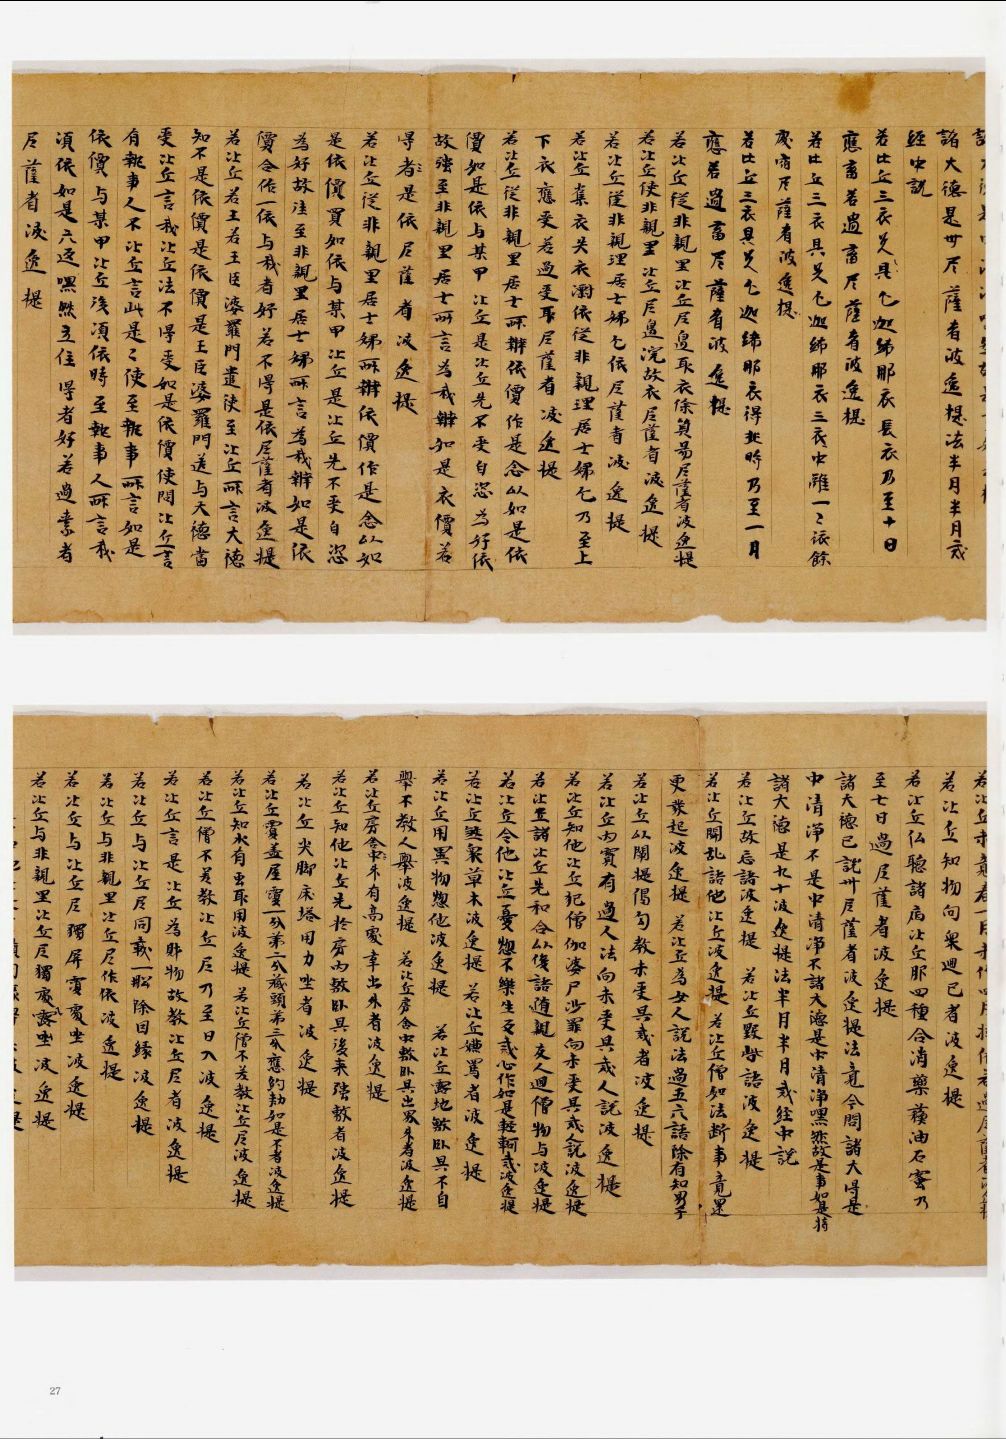 諸大德是卅尼薩耆波逸提法半月半月戒
經中說
若比丘三衣具乞迦絺那衣長衣乃至十日
應畜若過畜尼薩耆波逸提
若比丘三衣具乞迦絺那衣三衣中離一〻衣餘
處宿尼薩耆波逸提
若比丘三衣具乞迦絺那衣得非時乃至一月
應畜過畜尼薩耆波逸提
若比丘從非親里比丘尼邊取衣除貿易尼薩耆波逸提
若比丘使非親里比丘尼邊浣故衣尼薩耆波逸提
若比丘從非親理居士婦乞依尼薩耆波逸提
若比丘奪衣失衣從非親理居士婦乞乃至上
下衣應受若過受取尼薩耆波逸提
若比丘從非親里居士所辦依價作是念以如是依
價如是依与某甲比丘是比丘先不受自恣為好依
故強至非親里居士所言為我辦如是衣價若
得者是依尼薩耆波逸提
若比丘從非親里居士婦所辦依價作是念以如
是依價買如依与某甲比丘是比丘先不受自恣
為好故往至非親里居士婦所言為我辦如是依
價合作一依与我者好若不得是依尼薩耆波逸提
若比丘若王若王臣婆羅門遣使至比丘所言大德
知不是依價是依價是王臣婆羅門送与大德當
受比丘言我比丘法不得受如是依價使問比丘言
有執事人不比丘言此是〻使至執事所言如是
依價与某甲比丘後須依時至執事人所言我
須依如是六返嘿然立住得者好若過索者
尼薩耆波逸提
若比丘知物向衆迴已者波逸提
若比丘仏聽諸病比丘服四種含消藥蘓油石蜜乃
至七日過尼薩耆波逸提
諸大德已說卅尼薩耆波逸提法竟今問諸大得是
中清淨不是中清淨不諸大德是中清淨嘿然故是事如是持
諸大德是九十波逸提法半月半月戒經中說
若比丘故忘語波逸提 若比丘毀呰語波逸提
若比丘鬪乱諸他比丘波逸提 若比丘僧如法斷事竟還
更發起波逸提 若比丘為女人說法過五六語除有知男子
若比丘以闡提偈句教未受具戒者波逸提
若比丘內實有過人法向未受具戒人說波逸提
若比丘知他比丘犯僧伽婆尸沙罪向未受具戒人說波逸提
若比丘諸比丘先和合以後諸隨親友人迴僧物与波逸提
若比丘令他比丘憂惱不樂生受戒心作如是輕呵戒波逸提
若比丘煞衆草木波逸提 若比丘嫌罵者波逸提
若比丘用異物惱他波逸提 若比丘露地敷卧具不自
舉不教人舉波逸提 若比丘房舍中敷卧具出界外者波逸提
若比丘房舍中有高處牽出外者波逸提
若比丘知他比丘先於房內敷卧具後來強敷者波逸提
若比丘尖脚床搭用力坐者波逸提
若比丘知水有虫取用波逸提 若比丘僧不差教比丘尼波逸提
若比丘僧不差教比丘尼乃至日入波逸提
若比丘言是比丘為財物故教比丘尼者波逸提
若比丘与比丘尼同載一船除因緣波逸提
若比丘与非親里比丘尼作依波逸提
若比丘与比丘尼獨屏覆處坐波逸提
若比丘与非親里比丘尼獨露坐波逸提
27